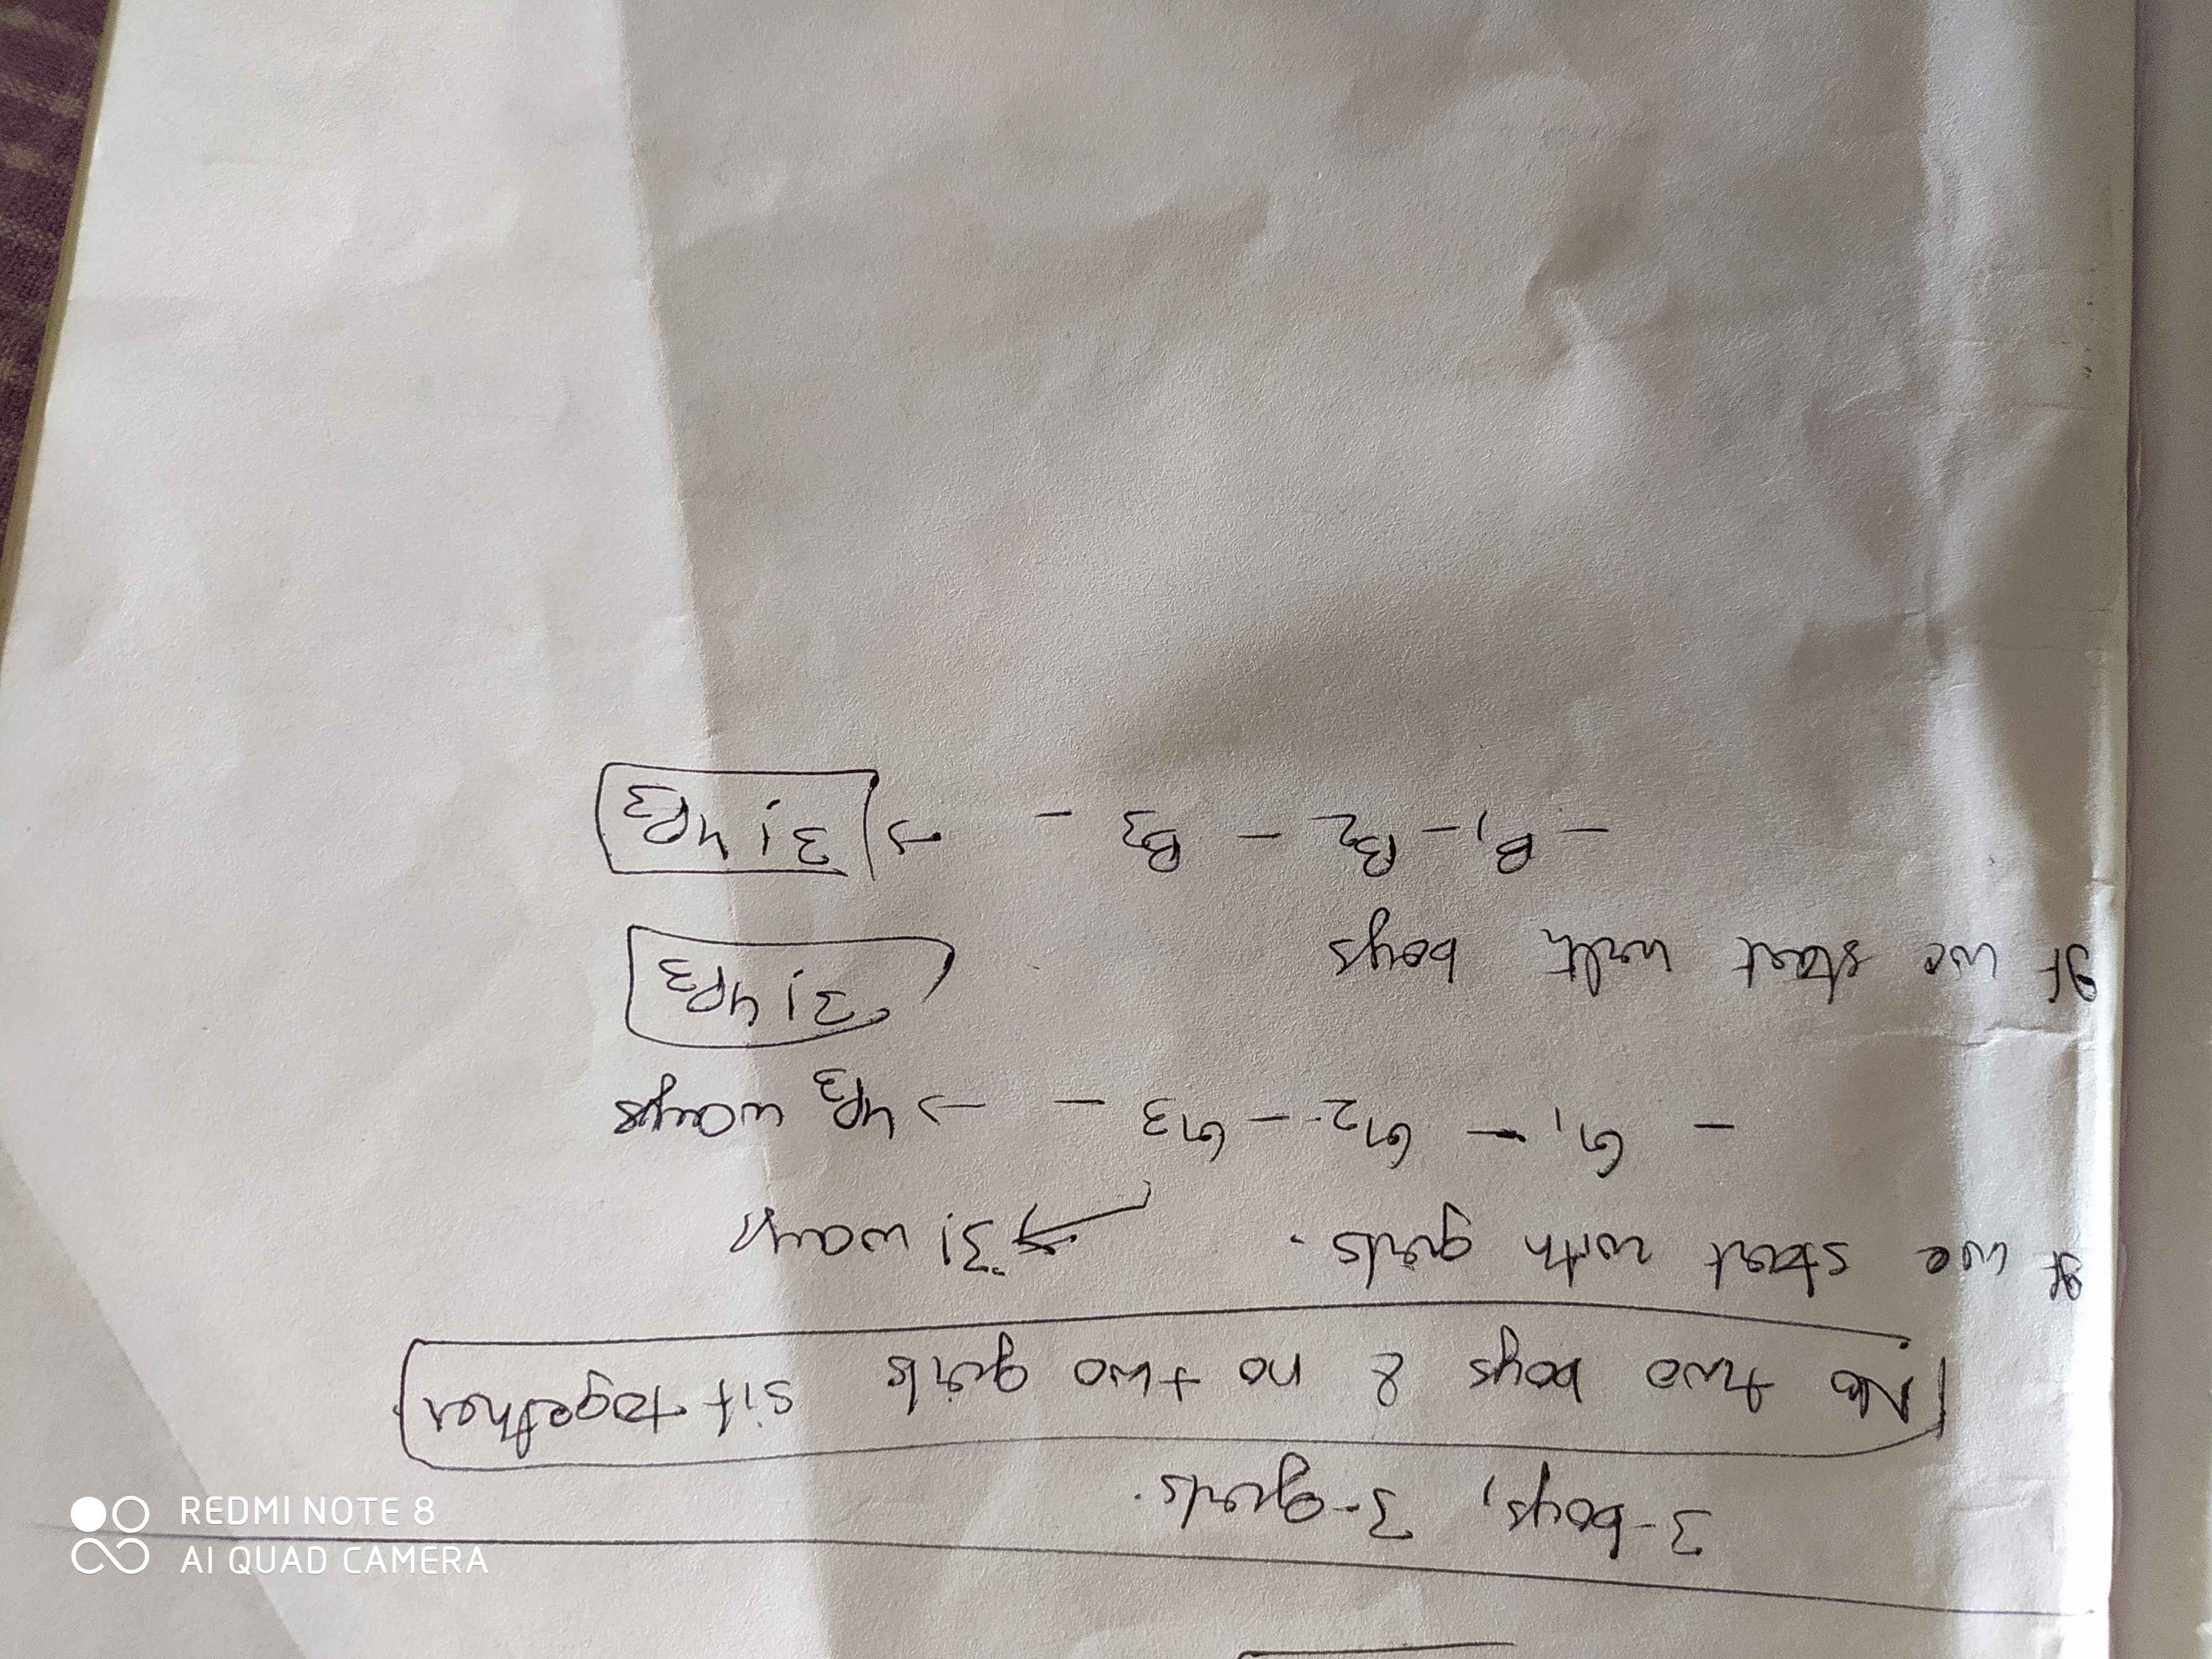 3-boys, 3-girls.
No two boys & no two girls sit together
If we start with girls. → 3! ways
- G1 - G2 - G3 - → 4P3 ways
3! 4P3
If we start with boys
- B1 - B2 - B3 - → 3! 4P3
REDMI NOTE 8
AI QUAD CAMERA